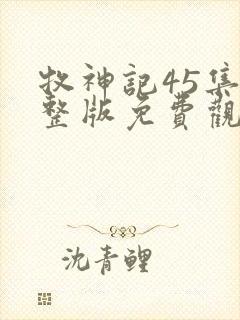 牧神記45集
整版免費觀
沈青鲤